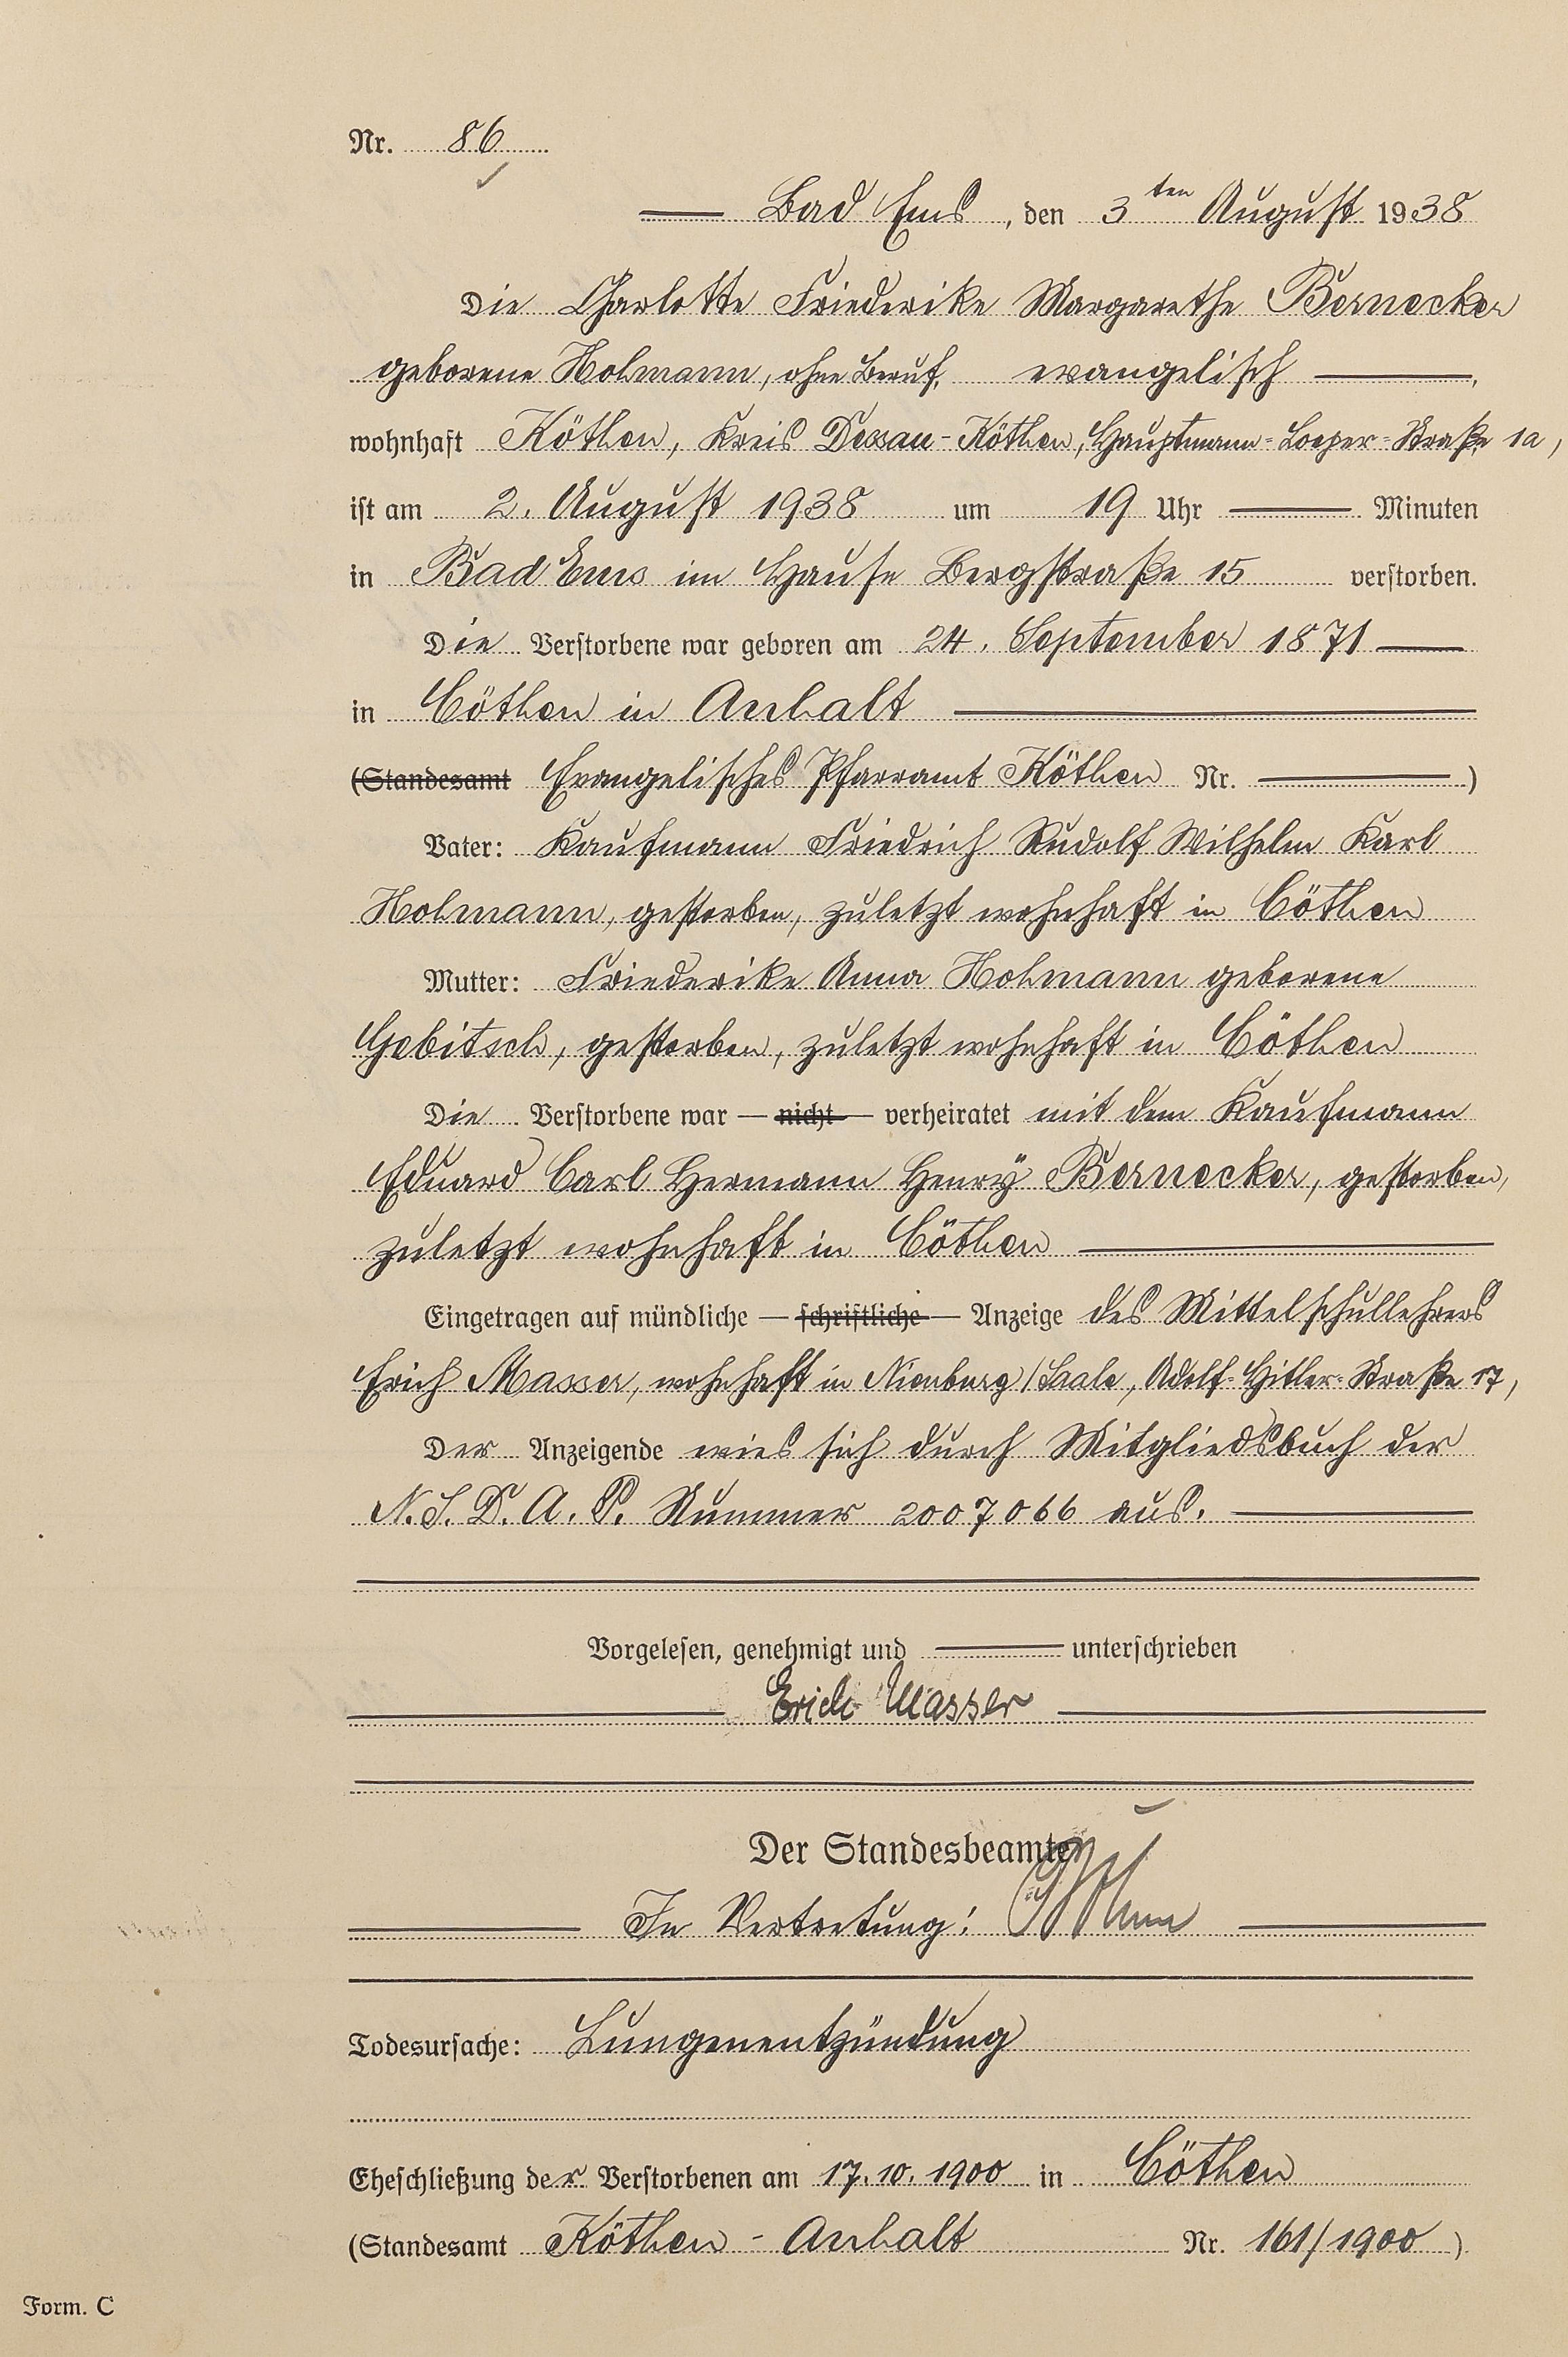 Nr. 86
Bad Ems, den 3ten August 1938
Die Charlotte Friederike Margarethe Bernecker
geborene Holmann, ohne Beruf, evangelisch
wohnhaft Köthen, Kreis Dessau-Köthen, Hauptmann-Loeper-Straße 1a,
ist am 2. August 1938 um 19 Uhr Minuten
in Bad Ems im Hause Bergstraße 15 verstorben.
Die Verstorbene war geboren am 24. September 1871
in Cöthen in Anhalt
(Standesamt Evangelisches Pfarramt Köthen Nr. )
Vater: Kaufmann Friedrich Rudolf Wilhelm Karl
Holmann, gestorben, zuletzt wohnhaft in Cöthen
Mutter: Friederike Anna Holmann geborene
Gebitsch, gestorben, zuletzt wohnhaft in Cöthen
Die Verstorbene war — nicht — verheiratet mit dem Kaufmann
Eduard Carl Hermann Henry Bernecker, gestorben,
zuletzt wohnhaft in Cöthen
Eingetragen auf mündliche — schriftliche — Anzeige des Mittelschullehrers
Erich Masser, wohnhaft in Nienburg/Saale, Adolf-Hitler-Straße 17,
Der Anzeigende wies sich durch Mitgliedsbuch der
N.S.D.A.P. Nummer 2007066 aus.
Vorgelesen, genehmigt und unterschrieben
Erich Masser
Der Standesbeamte
In Vertretung:
Todesursache: Lungenentzündung
Eheschließung der Verstorbenen am 17.10.1900 in Cöthen
(Standesamt Köthen-Anhalt Nr. 161/1900)
Form. C